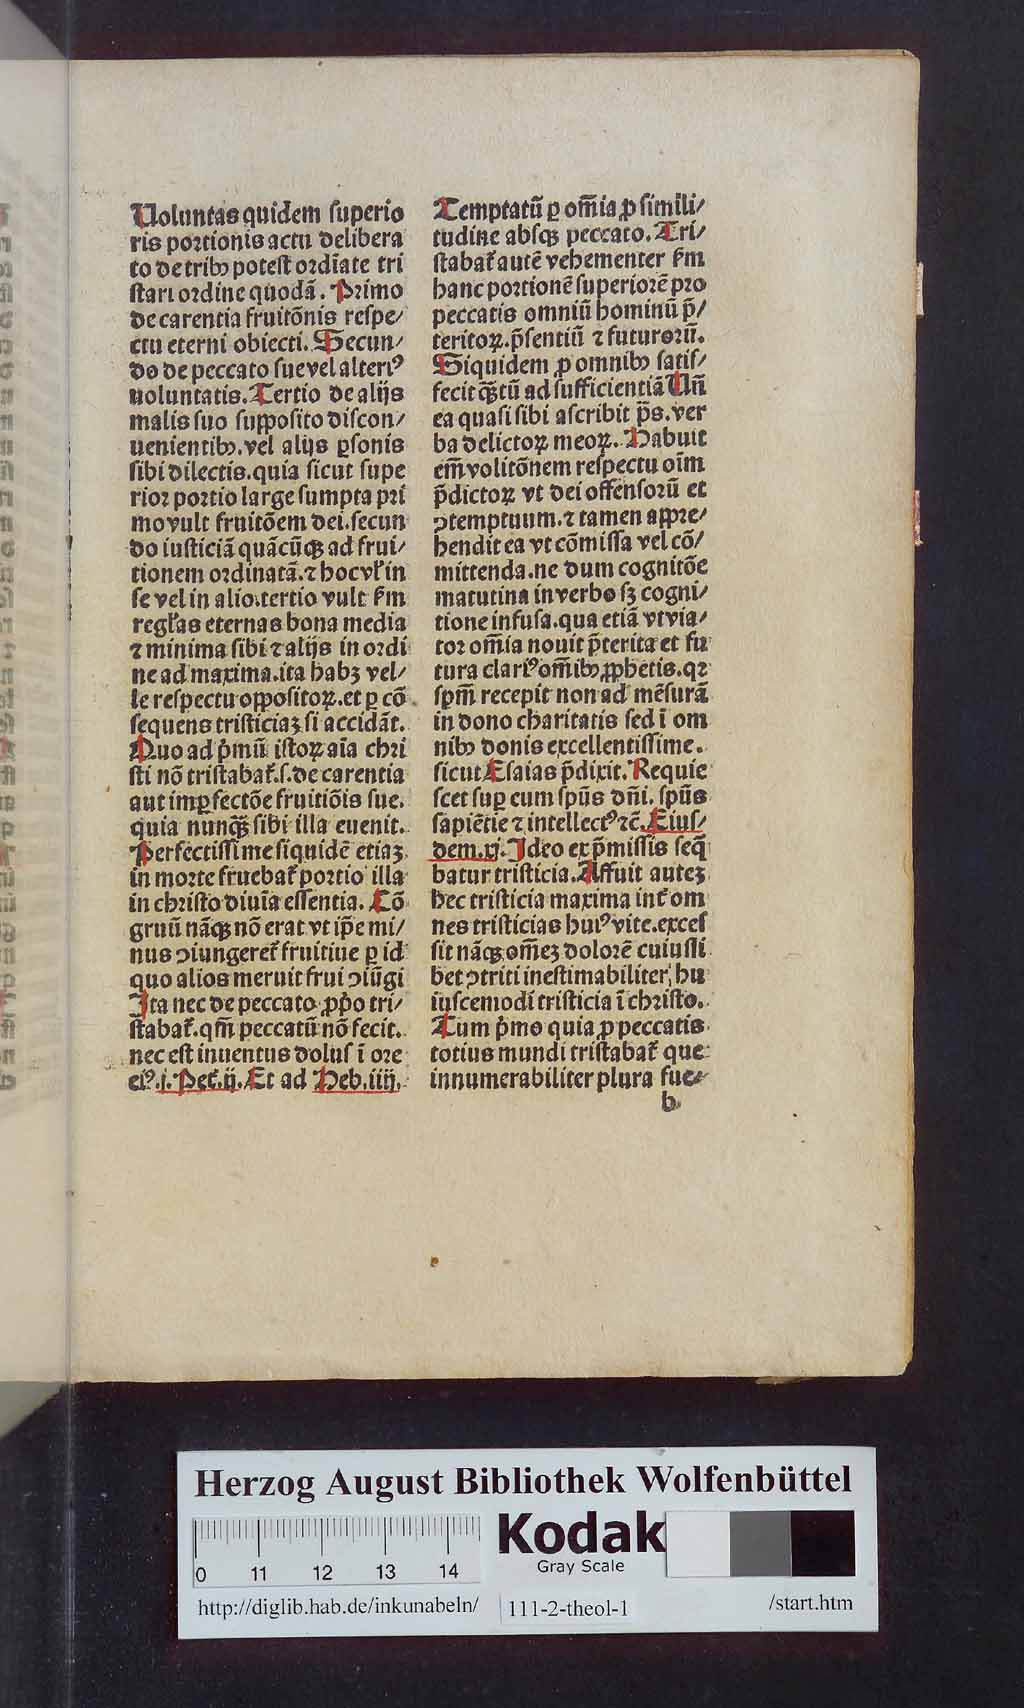 Uoluntas quidem superio
ris portionis actu delibera
to de tribꝰ potest ordīate tri
stari ordine quodā. Primo
de carentia fruitōnis respe/
ctu eterni obiecti. Secun/
do de peccato sue vel alteriꝰ
uoluntatis. Tertio de alijs
malis suo supposito discon/
uenientibꝰ. vel alijs ꝑsonis
sibi dilectis. quia sicut supe
rior portio large sumpta pri
mo vult fruitōem dei. secun
do iusticiā quācūqꝫ ad frui/
tionem ordinatā. ⁊ hoc vl̓ in
se vel in alio. tertio vult km̄
regl̓as eternas bona media
⁊ minima sibi ⁊ alijs in ordi
ne ad maxima. ita habꝫ vel/
le respectu oppositoꝝ. et ꝑ cō
sequens tristiciaꝫ si accidāt.
Quo ad p̄mū istoꝝ aīa chri
sti nō tristabat̓. s. de carentia
aut imꝑfectōe fruitiōis sue.
quia nunqꝫ̄ sibi illa euenit.
Perfectissime siquidē etiaꝫ
in morte fruebat̓ portio illa
in christo diuīa essentia. Cō
gruū nāqꝫ nō erat vt ip̄e mi/
nus ꝯiungeret̓ fruitiue ꝑ id
quo alios meruit frui ꝯiūgi
Ita nec de peccato ꝓp̄o tri/
stabat̓. qm̄ peccatū nō fecit.
nec est inuentus dolus ī ore
eiꝰ. j. Pet̓. ij. Et ad Heb. iiij.
Temptatū ꝑ om̄ia ꝓ simili/
tudine absqꝫ peccato. Tri/
stabat̓ autē vehementer km̄
hanc portionē superiorē pro
peccatis omniū hominū p̄/
teritoꝝ. p̄sentiū ⁊ futurorū.
Siquidem ꝓ omnibꝰ satis/
fecit qꝫ̄tū ad sufficientiā Un̄
ea quasi sibi ascribit p̄s. ver
ba delictoꝝ meoꝝ. Habuit
em̄ volitōnem respectu oīm
p̄dictoꝝ vt dei offensorū et
ꝯtemptuum. ⁊ tamen appre/
hendit ea vt cōmissa vel cō/
mittenda. ne dum cognitōe
matutina in verbo sꝫ cogni/
tione infusa. qua etiā vt via/
tor om̄ia nouit p̄terita et fu
tura clariꝰ om̄ibꝰ ꝓphetis. qꝛ
spm̄ recepit non ad mēsurā
in dono charitatis sed ī om
nibꝰ donis excellentissime.
sicut Esaias p̄dixit. Requie
scet suꝑ eum spūs dn̄i. spūs
sapiētie ⁊ intellectꝰ ⁊c̄. Eius/
dem. xj. Ideo ex p̄missis seq̄
batur tristicia. Affuit auteꝫ
hec tristicia maxima int̓ om
nes tristicias huiꝰ vite. exces
sit nāqꝫ om̄eꝫ dolorē cuiusli
bet ꝯtriti inestimabiliter, hu
iuscemodi tristicia ī christo.
Tum p̄mo quia ꝓ peccatis
totius mundi tristabat̓ que
innumerabiliter plura fue/
b
Herzog August Bibliothek Wolfenbüttel
0 11 12 13 14
Kodak
Gray Scale
http://diglib.hab.de/inkunabeln/
111-2-theol-1
/start.htm